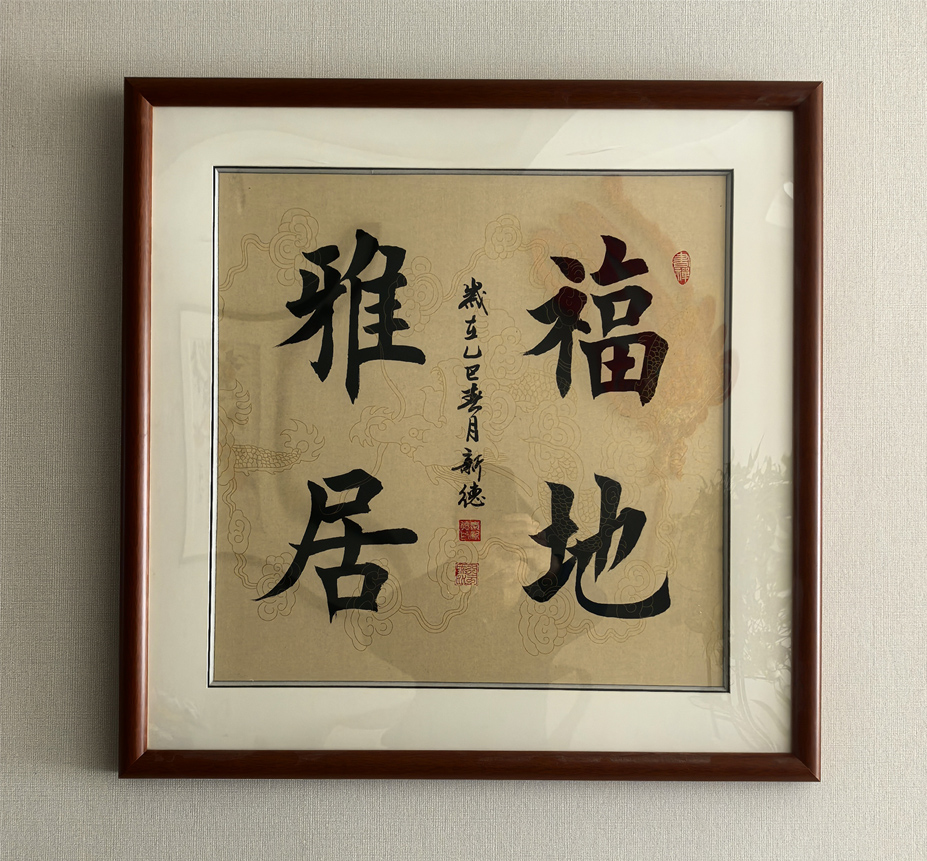 福地
雅居
歲在乙巳春月新德